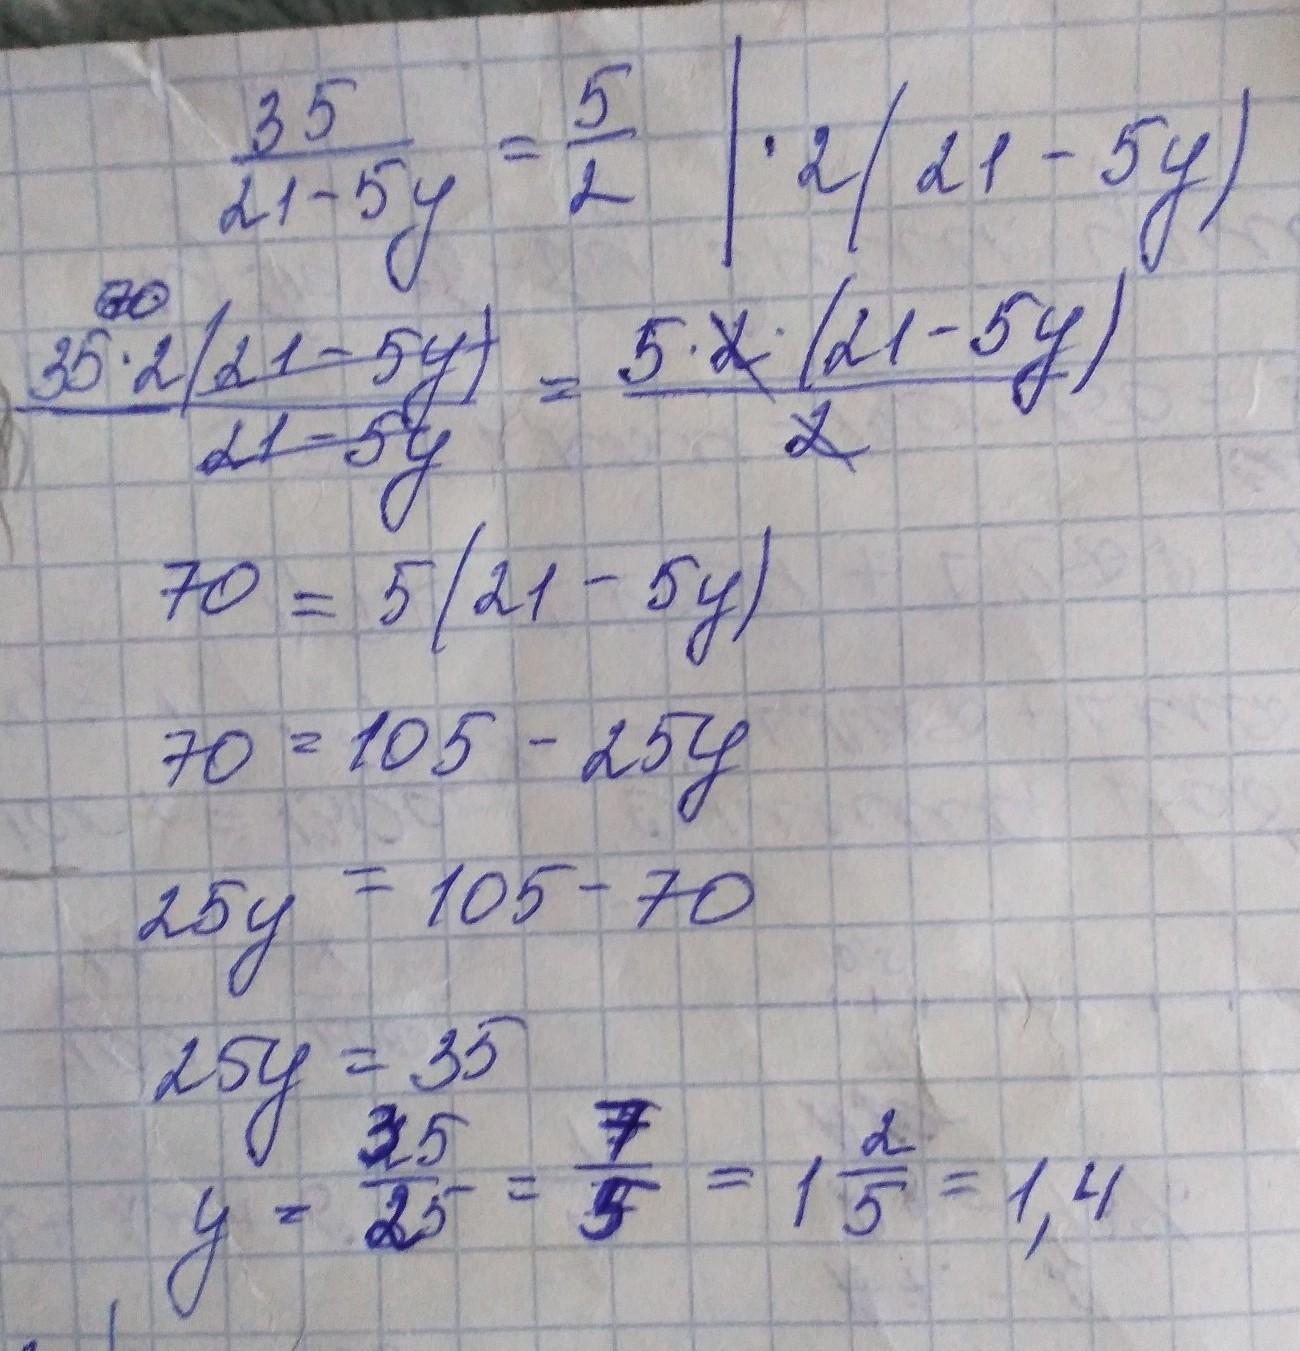 35/(21-5y) = 5/2 | · 2(21-5y)
70
35·2(21-5y)/(21-5y) = 5·2·(21-5y)/2
70 = 5(21-5y)
70 = 105 - 25y
25y = 105-70
25y = 35
y = 35/25 = 7/5 = 1 2/5 = 1,4